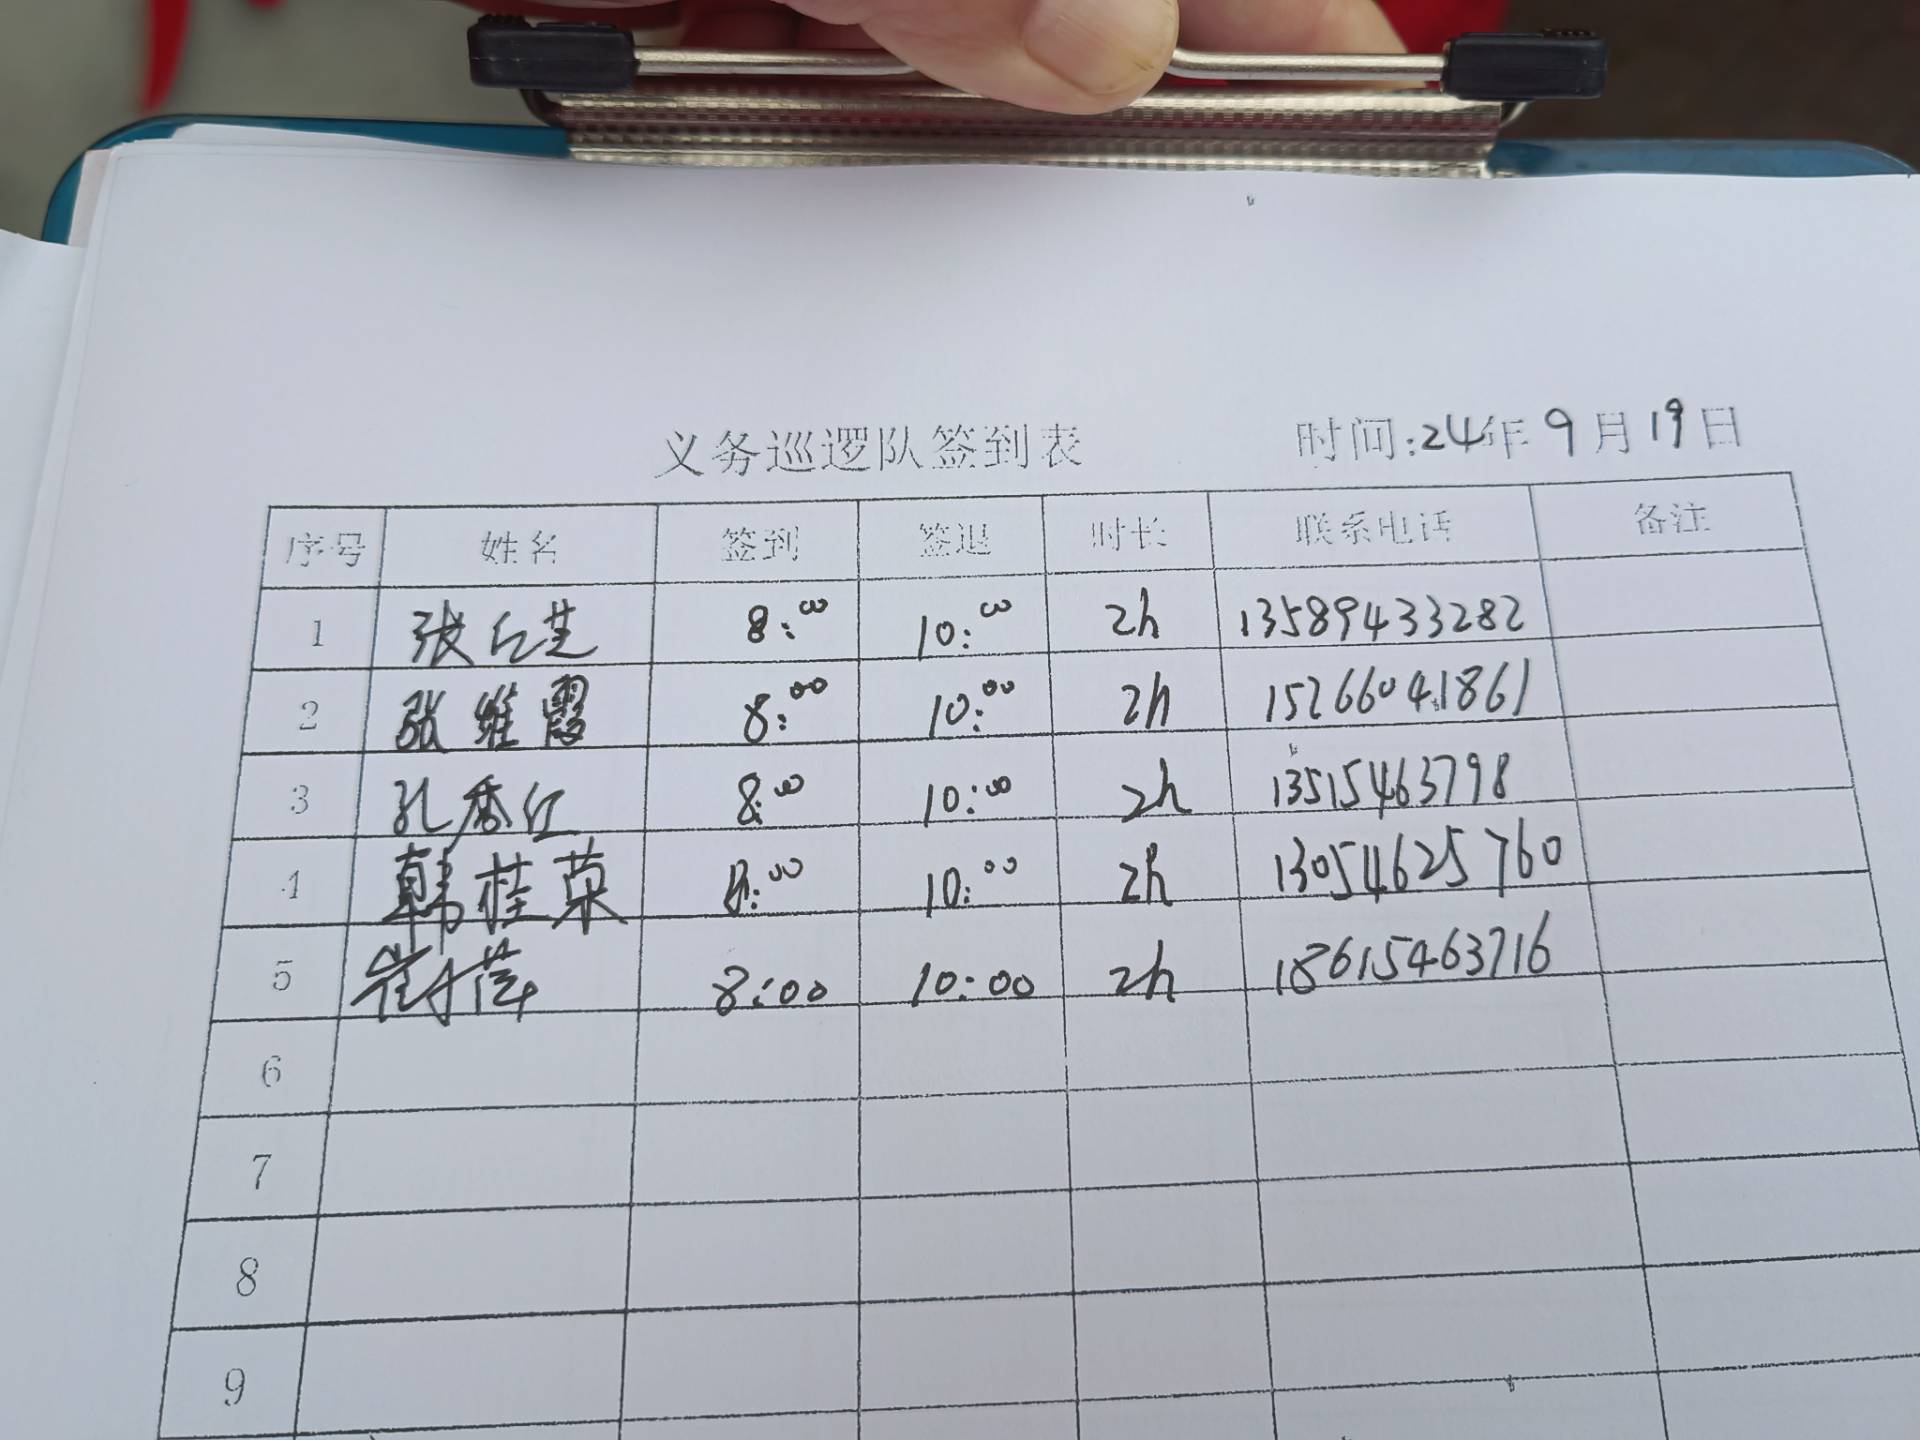 义务巡逻队签到表 时间:24年9月19日
序号 姓名 签到 签退 时长 联系电话 备注
1 张红芝 8:00 10:00 2h 13589433282
2 张维霞 8:00 10:00 2h 15266041861
3 孔秀红 8:00 10:00 2h 13515463798
4 韩桂荣 8:00 10:00 2h 13054625760
5 崔 萍 8:00 10:00 2h 18615463716
6
7
8
9